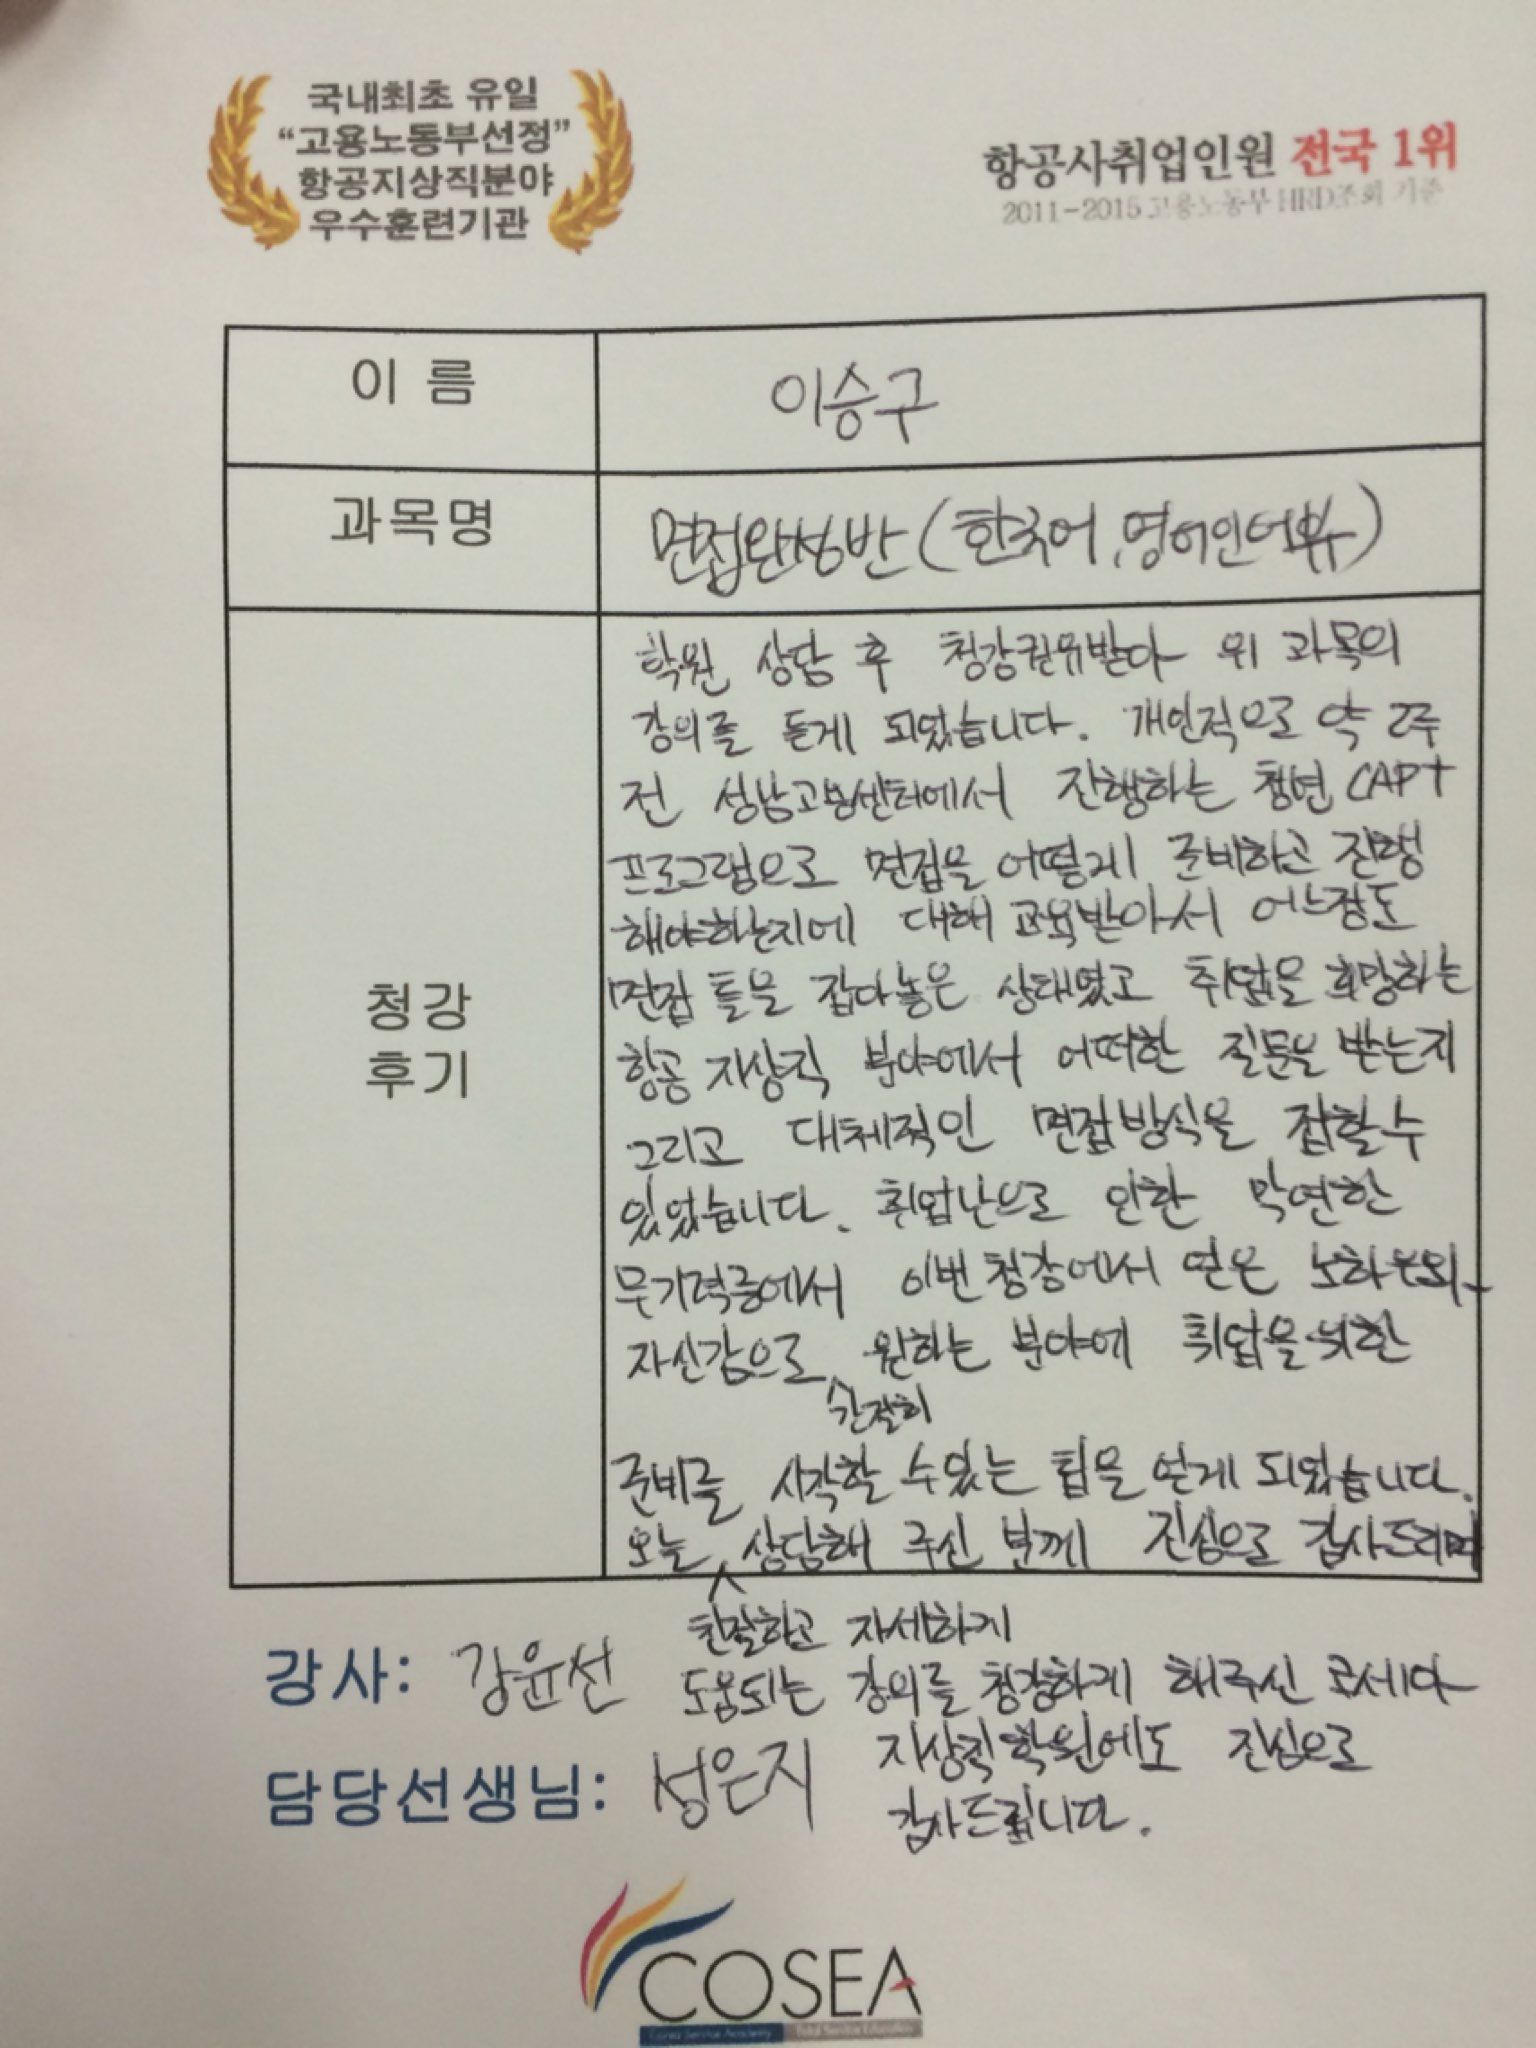 국내최초 유일
“고용노동부선정”
항공지상직분야
우수훈련기관
항공사취업인원 전국 1위
2011-2015 고용노동부 HRD조회 기준
이 름
이승구
과목명
면접완성반(한국어, 영어인터뷰)
청강
후기
학원 상담 후 청강권유받아 위 과목의
강의를 듣게 되었습니다. 개인적으로 약 2주
전 성남고용센터에서 진행하는 청년 CAP+
프로그램으로 면접을 어떻게 준비하고 진행
해야하는지에 대해 교육받아서 어느정도
면접 틀을 잡아놓은 상태였고 취업을 희망하는
항공 지상직 분야에서 어떠한 질문을 받는지
그리고 대체적인 면접방식을 접할수
있었습니다. 취업난으로 인한 막연한
무기력증에서 이번 청강에서 얻은 노하우와
자신감으로 원하는 분야에 취업을 위한
간절히
준비를 시작할 수있는 팁을 얻게 되었습니다.
오늘 상담해 주신 분께 진심으로 감사드리며
친절하고 자세하게
강사: 강윤선
도움되는 강의를 청강하게 해주신 코세아
지상직학원에도 진심으로
담당선생님: 성은지
감사드립니다.
COSEA
Korea Service Academy Total Service Education